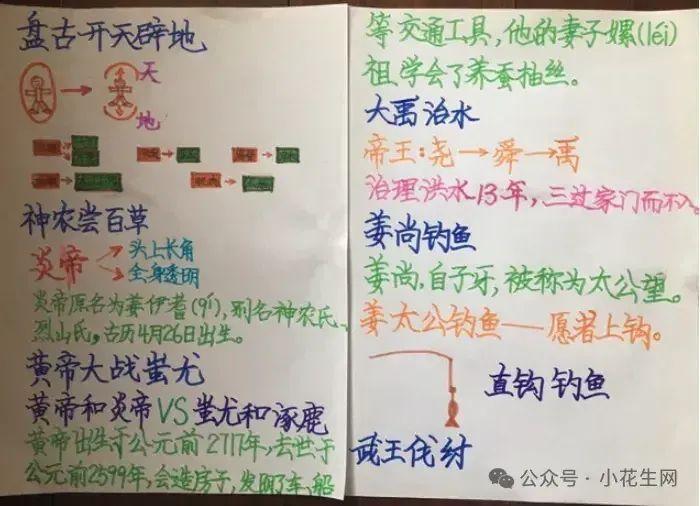 盘古开天辟地
天
地
神农尝百草
炎帝
头上长角
全身透明
炎帝原名为姜伊耆(qí),别名神农氏、
烈山氏,古历4月26日出生。
黄帝大战蚩尤
黄帝和炎帝VS蚩尤和涿鹿
黄帝出生于公元前2717年,去世于
公元前2599年,会造房子,发明了车、船
等交通工具,他的妻子嫘(léi)
祖学会了养蚕抽丝。
大禹治水
帝王:尧→舜→禹
治理洪水13年,三过家门而不入。
姜尚钓鱼
姜尚,自子牙,被称为太公望。
姜太公钓鱼——愿者上钩。
直钩钓鱼
武王伐纣
公众号·小花生网